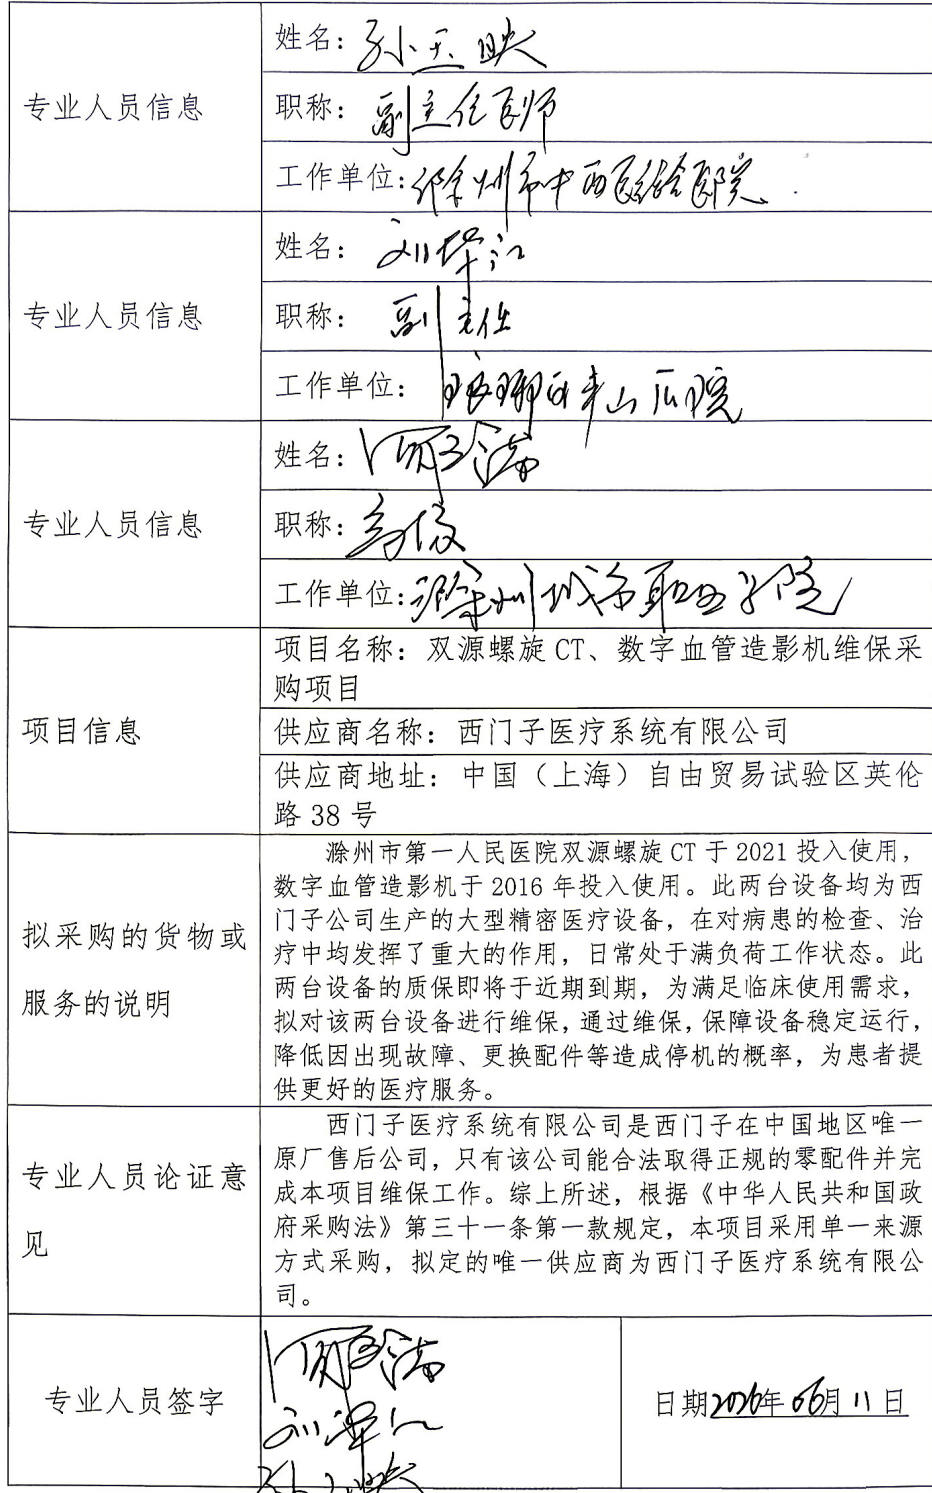 专业人员信息
姓名：孙玉映
职称：副主任医师
工作单位：滁州市中西医结合医院
专业人员信息
姓名：刘
职称：副主任
工作单位：琅琊区
专业人员信息
姓名：
职称：
工作单位：滁州城市职业学院
项目信息
项目名称：双源螺旋CT、数字血管造影机维保采
购项目
供应商名称：西门子医疗系统有限公司
供应商地址：中国（上海）自由贸易试验区英伦
路38号
拟采购的货物或
服务的说明
滁州市第一人民医院双源螺旋CT于2021投入使用，
数字血管造影机于2016年投入使用。此两台设备均为西
门子公司生产的大型精密医疗设备，在对病患的检查、治
疗中均发挥了重大的作用，日常处于满负荷工作状态。此
两台设备的质保即将于近期到期，为满足临床使用需求，
拟对该两台设备进行维保，通过维保，保障设备稳定运行，
降低因出现故障、更换配件等造成停机的概率，为患者提
供更好的医疗服务。
专业人员论证意
见
西门子医疗系统有限公司是西门子在中国地区唯一
原厂售后公司，只有该公司能合法取得正规的零配件并完
成本项目维保工作。综上所述，根据《中华人民共和国政
府采购法》第三十一条第一款规定，本项目采用单一来源
方式采购，拟定的唯一供应商为西门子医疗系统有限公
司。
专业人员签字
日期2026年06月11日